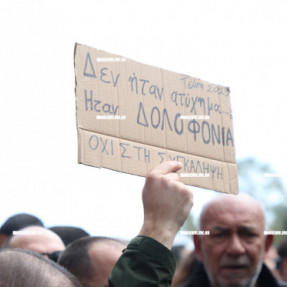 Τέμπη 2023
Δεν ήταν ατύχημα...
Ήταν ΔΟΛΟΦΟΝΙΑ
ΟΧΙ ΣΤΗ ΣΥΓΚΑΛΥΨΗ